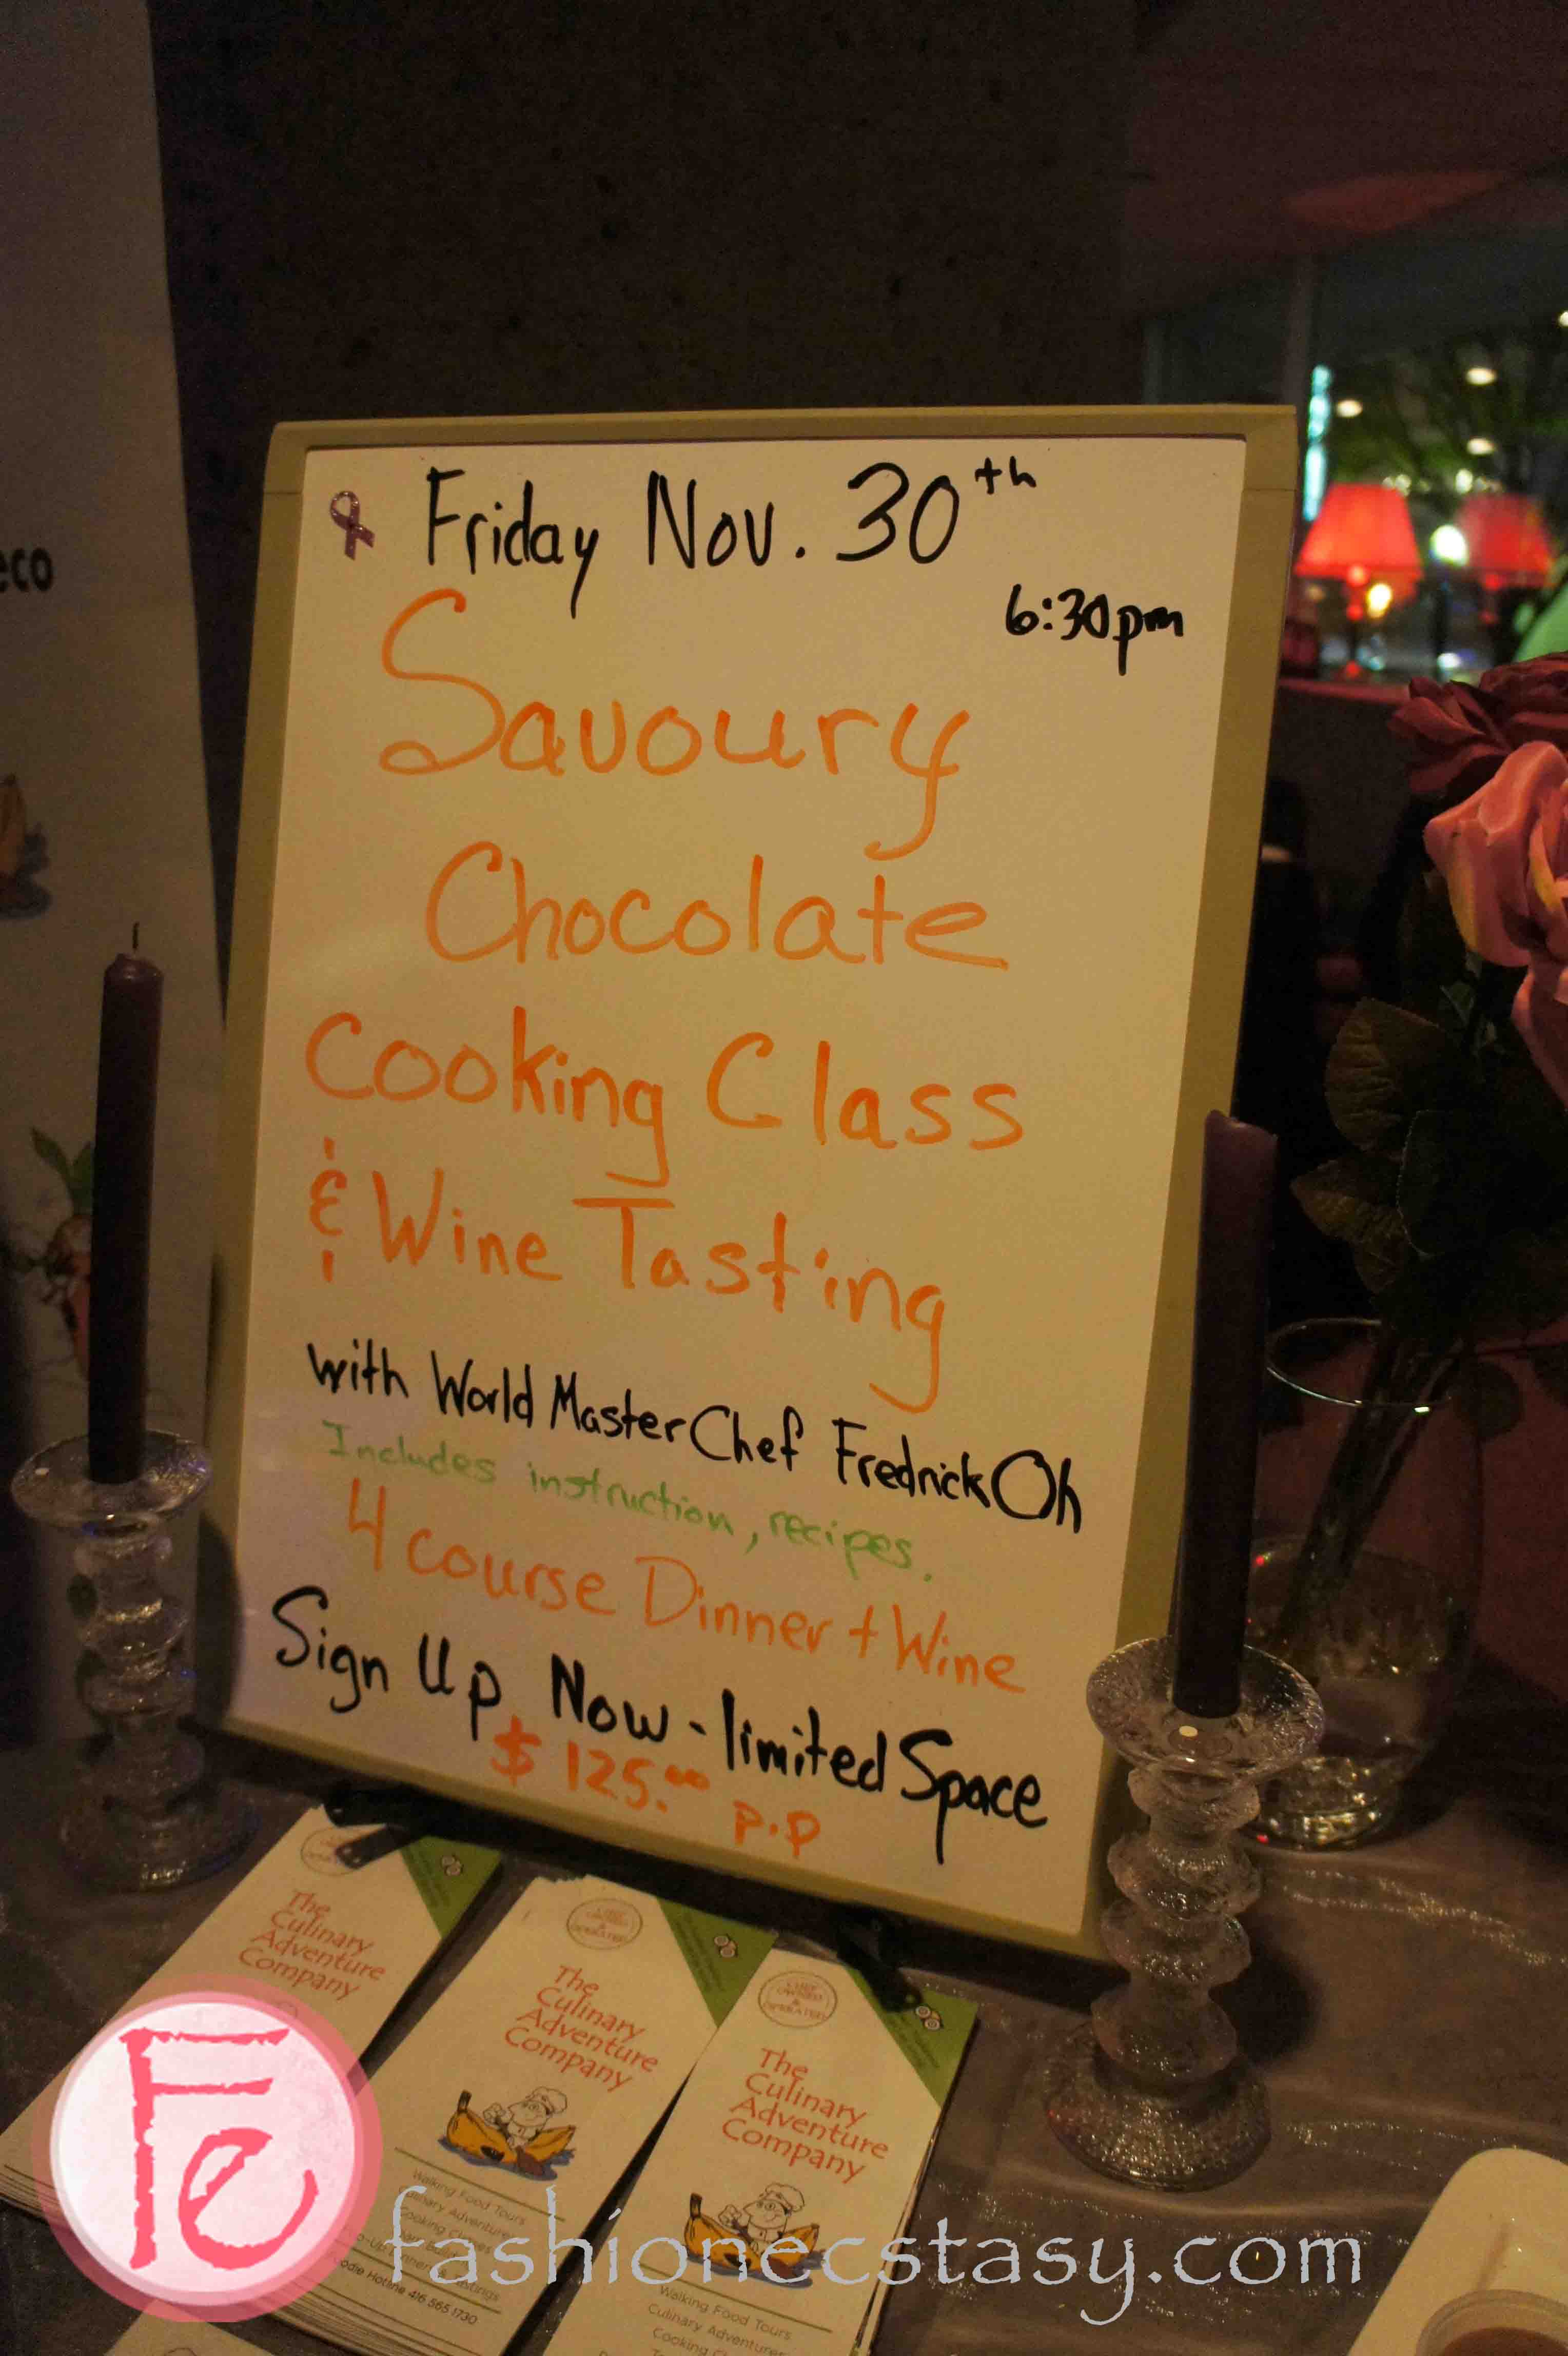 eco
Friday Nov. 30th
6:30pm
Savoury
Chocolate
Cooking Class
& Wine Tasting
with World Master Chef Fredrick Oh
Includes instruction, recipes.
4 course Dinner + Wine
Sign Up Now - limited Space
$125.00 p.p
The
Culinary
Adventure
Company
The
Culinary
Adventure
Company
Walking Food Tours
Culinary Adventures
Cooking Classes
Hotline 416 565 1730
CHEF
OWNED
&
OPERATED
The
Culinary
Adventure
Company
Walking Food Tours
Culinary Adventures
Cooking
Fe
fashionecstasy.com